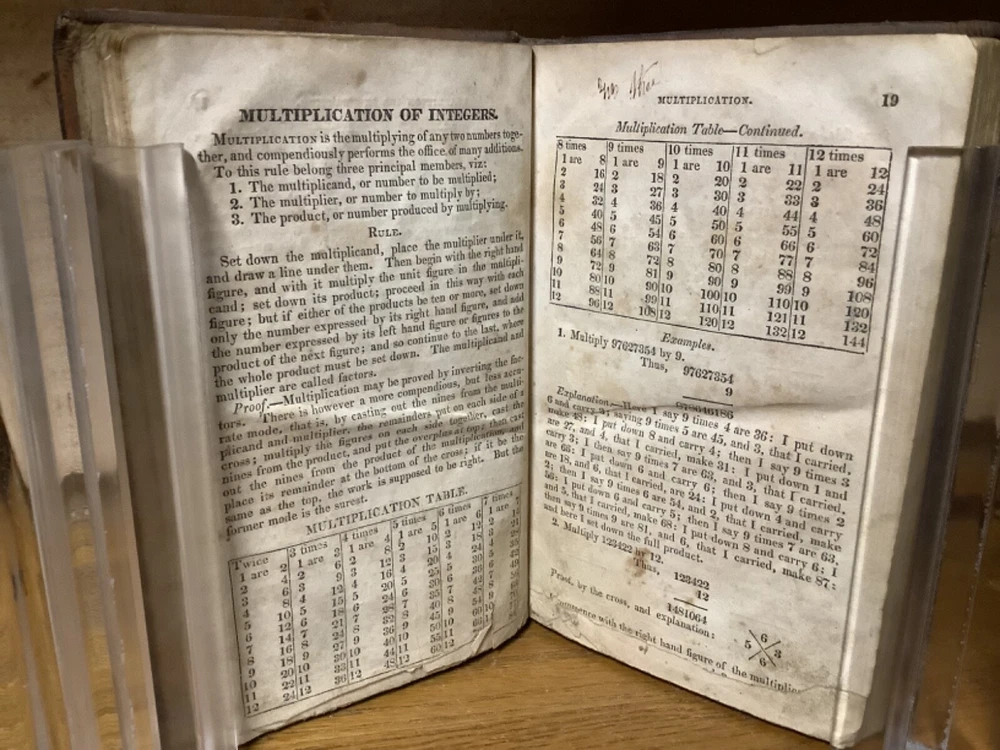 MULTIPLICATION OF INTEGERS.
MULTIPLICATION is the multiplying of any two numbers toge-
ther, and compendiously performs the office of many additions.
To this rule belong three principal members, viz:
1. The multiplicand, or number to be multiplied;
2. The multiplier, or number to multiply by;
3. The product, or number produced by multiplying.
RULE.
Set down the multiplicand, place the multiplier under it,
and draw a line under them. Then begin with the right hand
figure, and with it multiply the unit figure in the multipli-
cand; set down its product; proceed in this way with each
figure; but if either of the products be ten or more, set down
only the number expressed by its right hand figure, and add
the number expressed by its left hand figure or figures to the
product of the next figure; and so continue to the last, where
the whole product must be set down. The multiplicand and
multiplier are called factors.
Proof.—Multiplication may be proved by inverting the fac-
tors. There is however a more compendious, but less accu-
rate mode, that is, by casting out the nines from the multi-
plicand and multiplier, the remainders put on each side of a
cross; multiply the figures on each side together, cast the
nines from the product, and put the overplus at top; then cast
out the nines from the product of the multiplication, and
place its remainder at the bottom of the cross; if it be the
same as the top, the work is supposed to be right. But the
former mode is the surest.
MULTIPLICATION TABLE.
Twice 3 times 4 times 5 times 6 times 7 times
1 are 2 1 are 3 1 are 4 1 are 5 1 are 6 1 are
2 4 2 6 2 8 2 10 2 12 2
3 6 3 9 3 12 3 15 3 18 3
4 8 4 12 4 16 4 20 4 24 4
5 10 5 15 5 20 5 25 5 30 5
6 12 6 18 6 24 6 30 6 36 6
7 14 7 21 7 28 7 35 7 42 7
8 16 8 24 8 32 8 40 8 48 8
9 18 9 27 9 36 9 45 9 54 9
10 20 10 30 10 40 10 50 10 60 10
11 22 11 33 11 44 11 55 11
12 24 12 36 12 48 12 60 12
MULTIPLICATION. 19
Multiplication Table—Continued.
8 times 9 times 10 times 11 times 12 times
1 are 8 1 are 9 1 are 10 1 are 11 1 are 12
2 16 2 18 2 20 2 22 2 24
3 24 3 27 3 30 3 33 3 36
4 32 4 36 4 40 4 44 4 48
5 40 5 45 5 50 5 55 5 60
6 48 6 54 6 60 6 66 6 72
7 56 7 63 7 70 7 77 7 84
8 64 8 72 8 80 8 88 8 96
9 72 9 81 9 90 9 99 9 108
10 80 10 90 10 100 10 110 10 120
11 88 11 99 11 110 11 121 11 132
12 96 12 108 12 120 12 132 12 144
Examples.
1. Multiply 97627354 by 9.
Thus, 97627354
9
878646186
Explanation—Here I say 9 times 4 are 36: I put down
6 and carry 3; saying 9 times 5 are 45, and 3, that I carried,
make 48: I put down 8 and carry 4; then I say 9 times 3
are 27, and 4, that I carried, make 31: I put down 1 and
carry 3; then I say 9 times 7 are 63, and 3, that I carried,
are 66: I put down 6 and carry 6; then I say 9 times 2
are 18, and 6, that I carried, are 24: I put down 4 and carry
2; then I say 9 times 6 are 54, and 2, that I carried, make
56: I put down 6 and carry 5; then I say 9 times 7 are 63,
and 5, that I carried, make 68: I put down 8 and carry 6; I
then say 9 times 9 are 81, and 6, that I carried, make 87:
and here I set down the full product.
2. Multiply 123422 by 12.
Thus, 123422
12
1481064
Proof, by the cross, and explanation:
6
5 3
6
Commence with the right hand figure of the multiplier